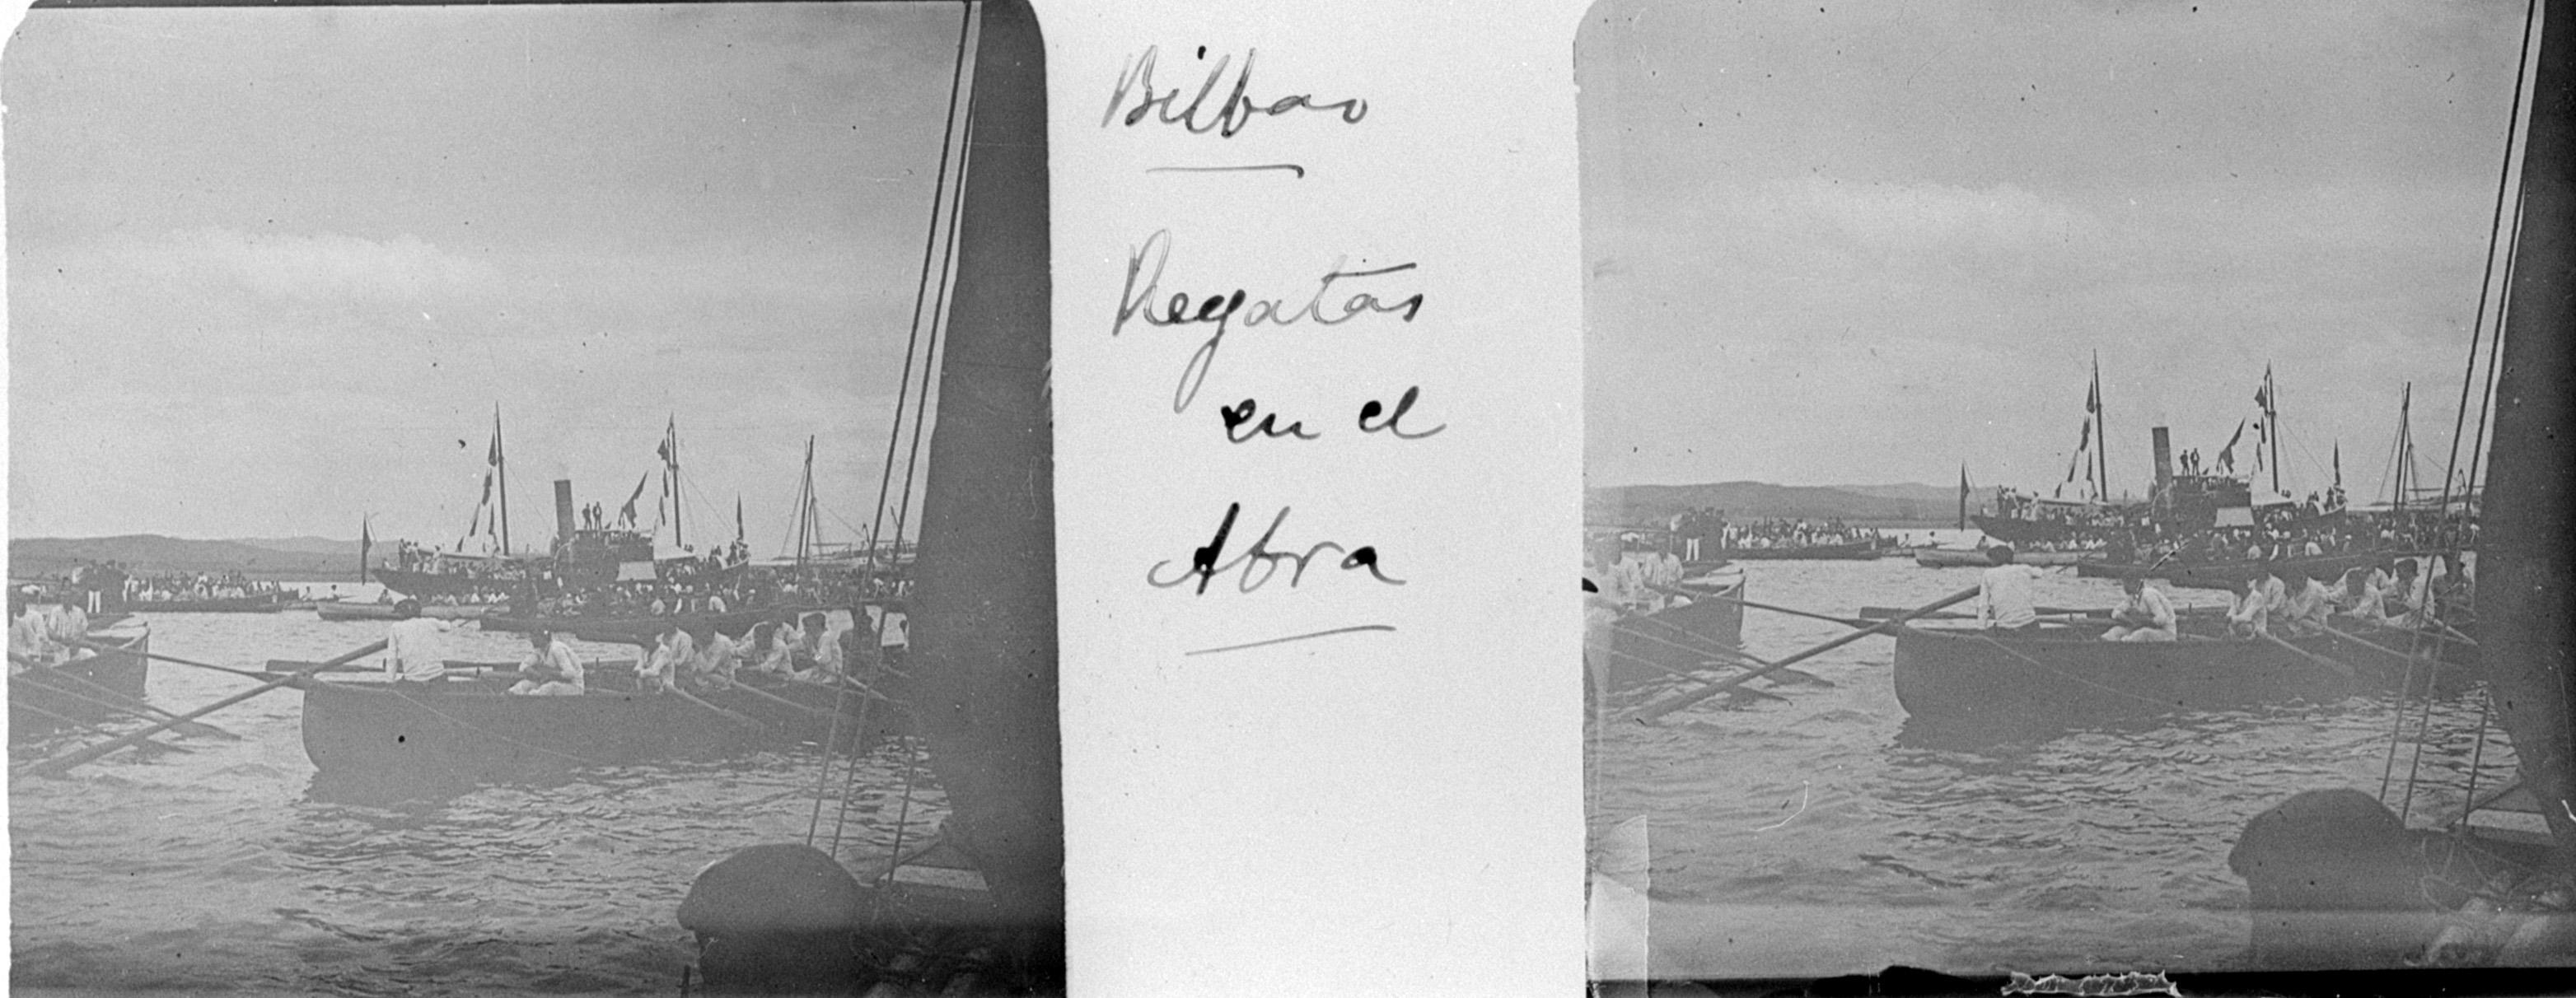 Bilbao
Regatas
en el
Abra